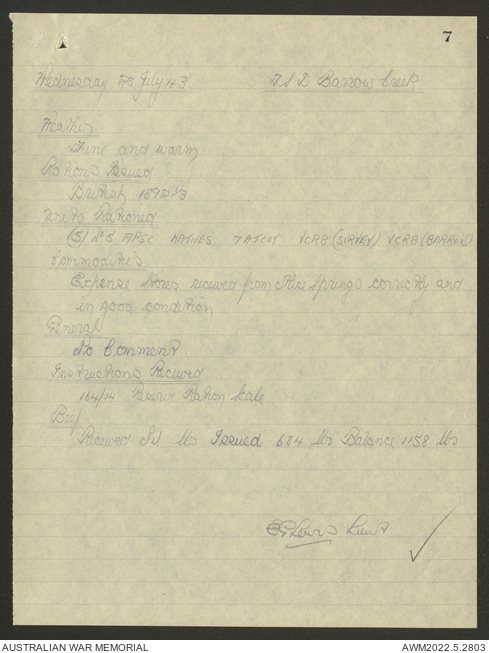 7
Wednesday 28 July 43 F S D Barrow Creek
Weather
Fine and warm
Rations Issued
British 1892 1/3
Units Rationed
(5) No 5 NATIVES VCRB (SURVEY) VCRB (BARROW)
Commodities
Expense Stores received from Alice Springs correctly and
in good condition
General
No Comment
Instructions Received
164/14 Reserve Ration Scale
Beef
Received Nil lbs Issued 684 lbs Balance 1158 lbs
Lieut
AUSTRALIAN WAR MEMORIAL AWM2022.5.2803